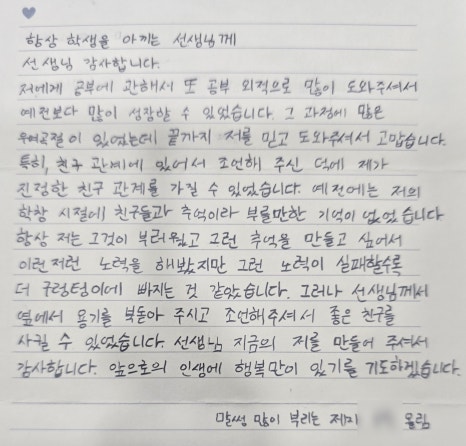 항상 학생을 아끼는 선생님께
선생님 감사합니다.
저에게 공부에 관해서 또 공부 외적으로 많이 도와주셔서
예전보다 많이 성장할 수 있었습니다. 그 과정에 많은
우여곡절이 있었는데 끝까지 저를 믿고 도와주셔서 고맙습니다.
특히, 친구 관계에 있어서 조언해 주신 덕에 제가
진정한 친구 관계를 가질 수 있었습니다. 예전에는 저의
학창 시절에 친구들과 추억이라 부를만한 기억이 없었습니다
항상 저는 그것이 부러웠고 그런 추억을 만들고 싶어서
이런저런 노력을 해봤지만 그런 노력이 실패할수록
더 구렁텅이에 빠지는 것 같았습니다. 그러나 선생님께서
옆에서 용기를 북돋아 주시고 조언해주셔서 좋은 친구를
사귈 수 있었습니다. 선생님 지금의 저를 만들어 주셔서
감사합니다. 앞으로의 인생에 행복만이 있기를 기도하겠습니다.
말썽 많이 부리는 제자 올림